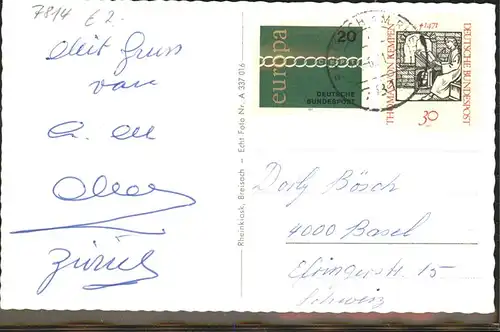 7814 £ 2.
Mit Gruss
von
Zürich
Rheinkiosk, Breisach — Echt Foto Nr. A 337 016
europa
20
DEUTSCHE
BUNDESPOST
THOMAS VON KEMPEN
†1471
DEUTSCHE BUNDESPOST
30
Dorly Bösch
4000 Basel
15
Schweiz